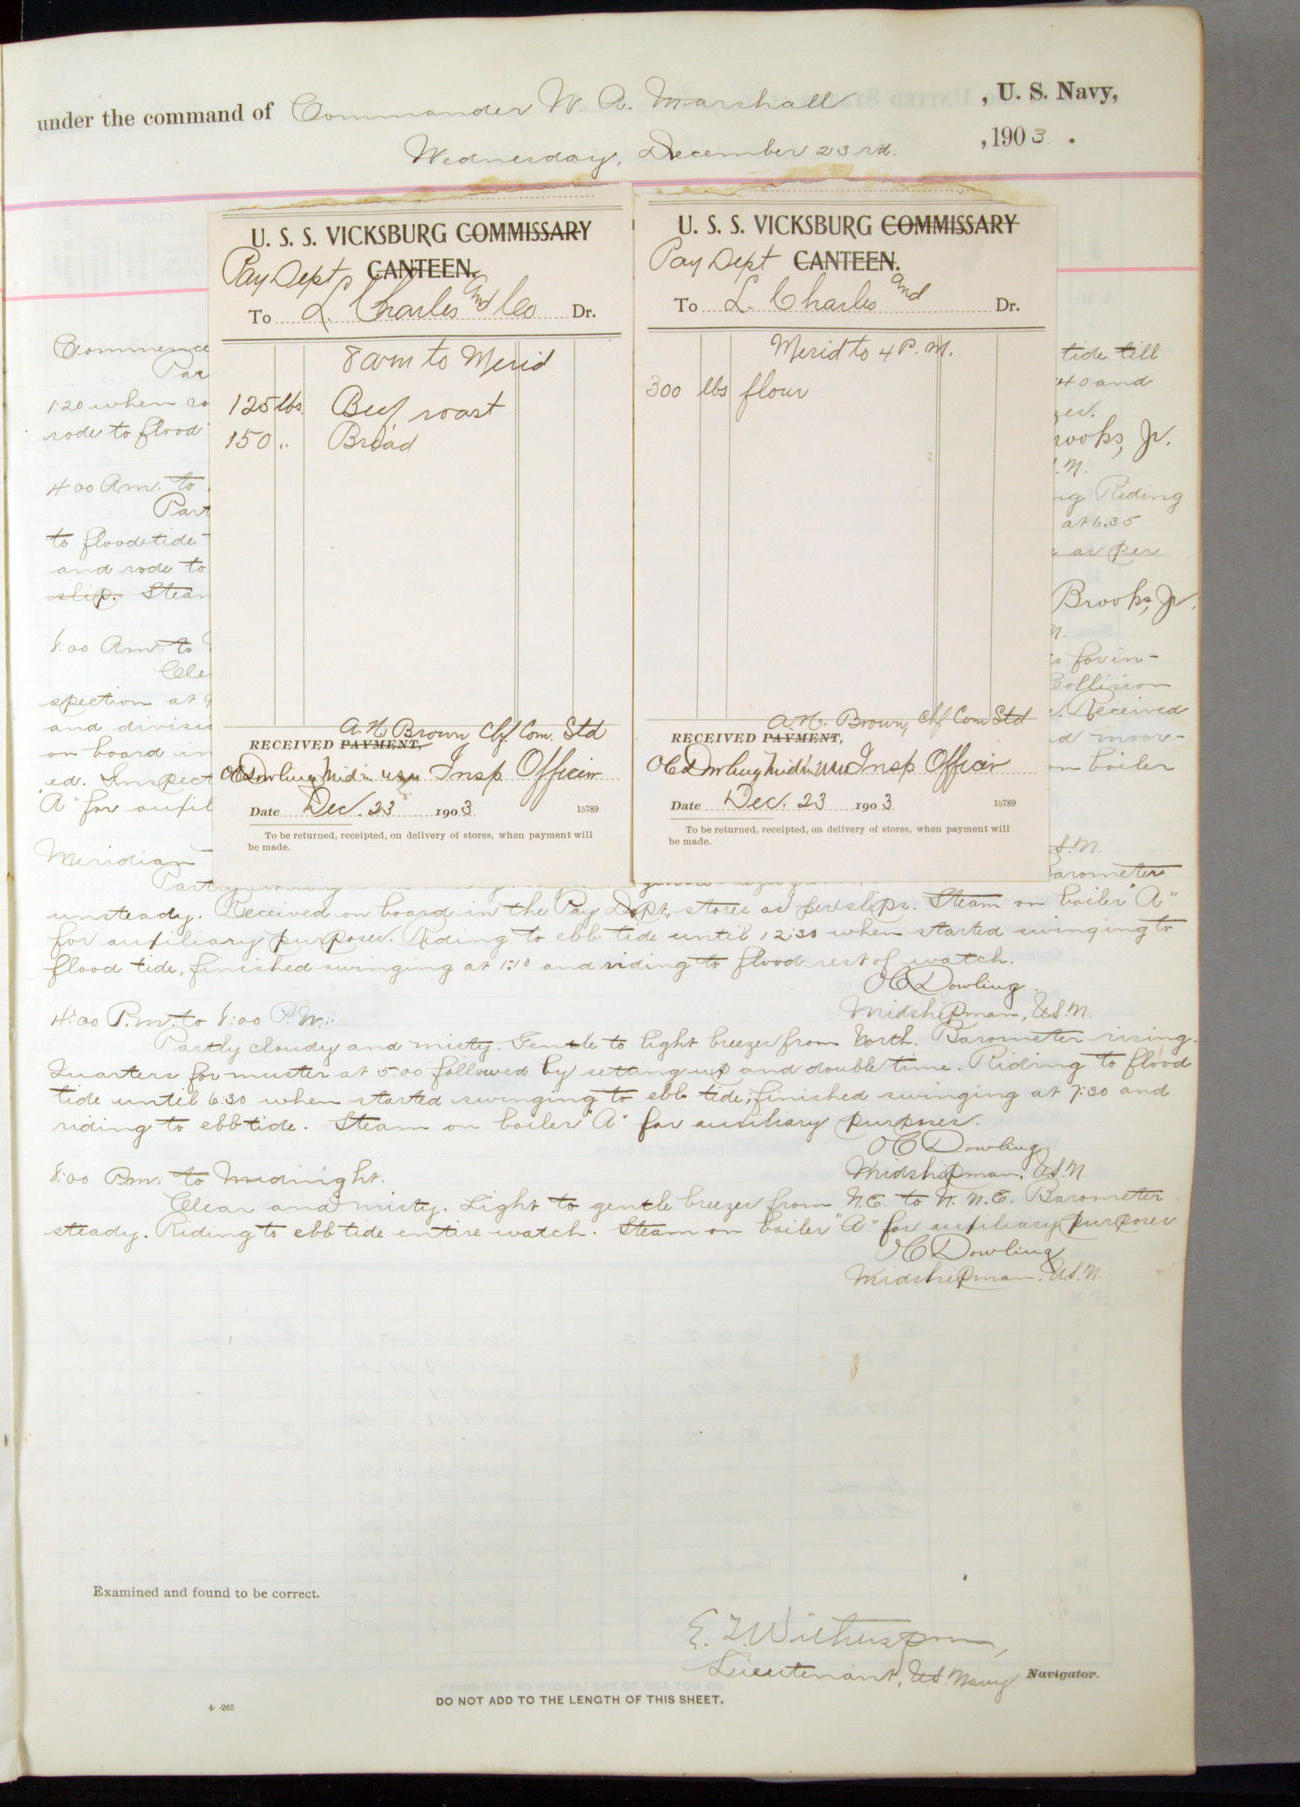 under the command of Commander W. A. Marshall , U. S. Navy,
Wednesday, December 23rd. , 1903.
U. S. S. VICKSBURG COMMISSARY
Pay Dept CANTEEN.
To L. Charles and Co Dr.
8 a m to Merid
125 lbs. Beef roast
150 " Bread
A. N. Brown Chf. Com. Std
RECEIVED PAYMENT,
O C Dowling Mid'n USN Insp Officer
Date Dec. 23 1903 15789
To be returned, receipted, on delivery of stores, when payment will
be made.
U. S. S. VICKSBURG COMMISSARY
Pay Dept CANTEEN.
To L. Charles and Dr.
Merid to 4 P. M.
300 lbs flour
A. N. Brown, Chf Com Std
RECEIVED PAYMENT,
O C Dowling Mid'n USN Insp Officer
Date Dec. 23 1903 15789
To be returned, receipted, on delivery of stores, when payment will
be made.
Commence tide till
Par 40 and
1:20 when
rode to flood rooks, Jr.
4:00 Am. to
Part ng Riding
to flood tide at 6:35
and rode to as per
slip. Stea Brooks, Jr.
8:00 Am. to
Cle for in-
spection at 9 Collision
and divisi Received
on board in d moor-
ed. Inspect on boiler
"A" for auxil
Meridian S.N.
Barometer
unsteady. Received on board in the Pay Dept, stores as per slips. Steam on boiler "A"
for auxiliary purposes. Riding to ebb tide until 12:30 when started swinging to
flood tide, finished swinging at 1:10 and riding to flood rest of watch.
O C Dowling
Midshipman, U.S.N.
4:00 P.m. to 8:00 P.m.
Partly cloudy and misty. Gentle to light breezes from North. Barometer rising.
Quarters for muster at 5:00 followed by setting up and double time. Riding to flood
tide until 6:30 when started swinging to ebb tide; finished swinging at 7:30 and
riding to ebb tide. Steam on boiler "A" for auxiliary purposes.
O C Dowling
Midshipman, U.S.N.
8:00 P.m. to Midnight.
Clear and misty. Light to gentle breezes from N.E. to N.N.E. Barometer
steady. Riding to ebb tide entire watch. Steam on boiler "A" for auxiliary purposes
O C Dowling
Midshipman, U.S.N.
Examined and found to be correct.
E. T. Witherspoon,
Lieutenant, U.S. Navy Navigator.
DO NOT ADD TO THE LENGTH OF THIS SHEET.